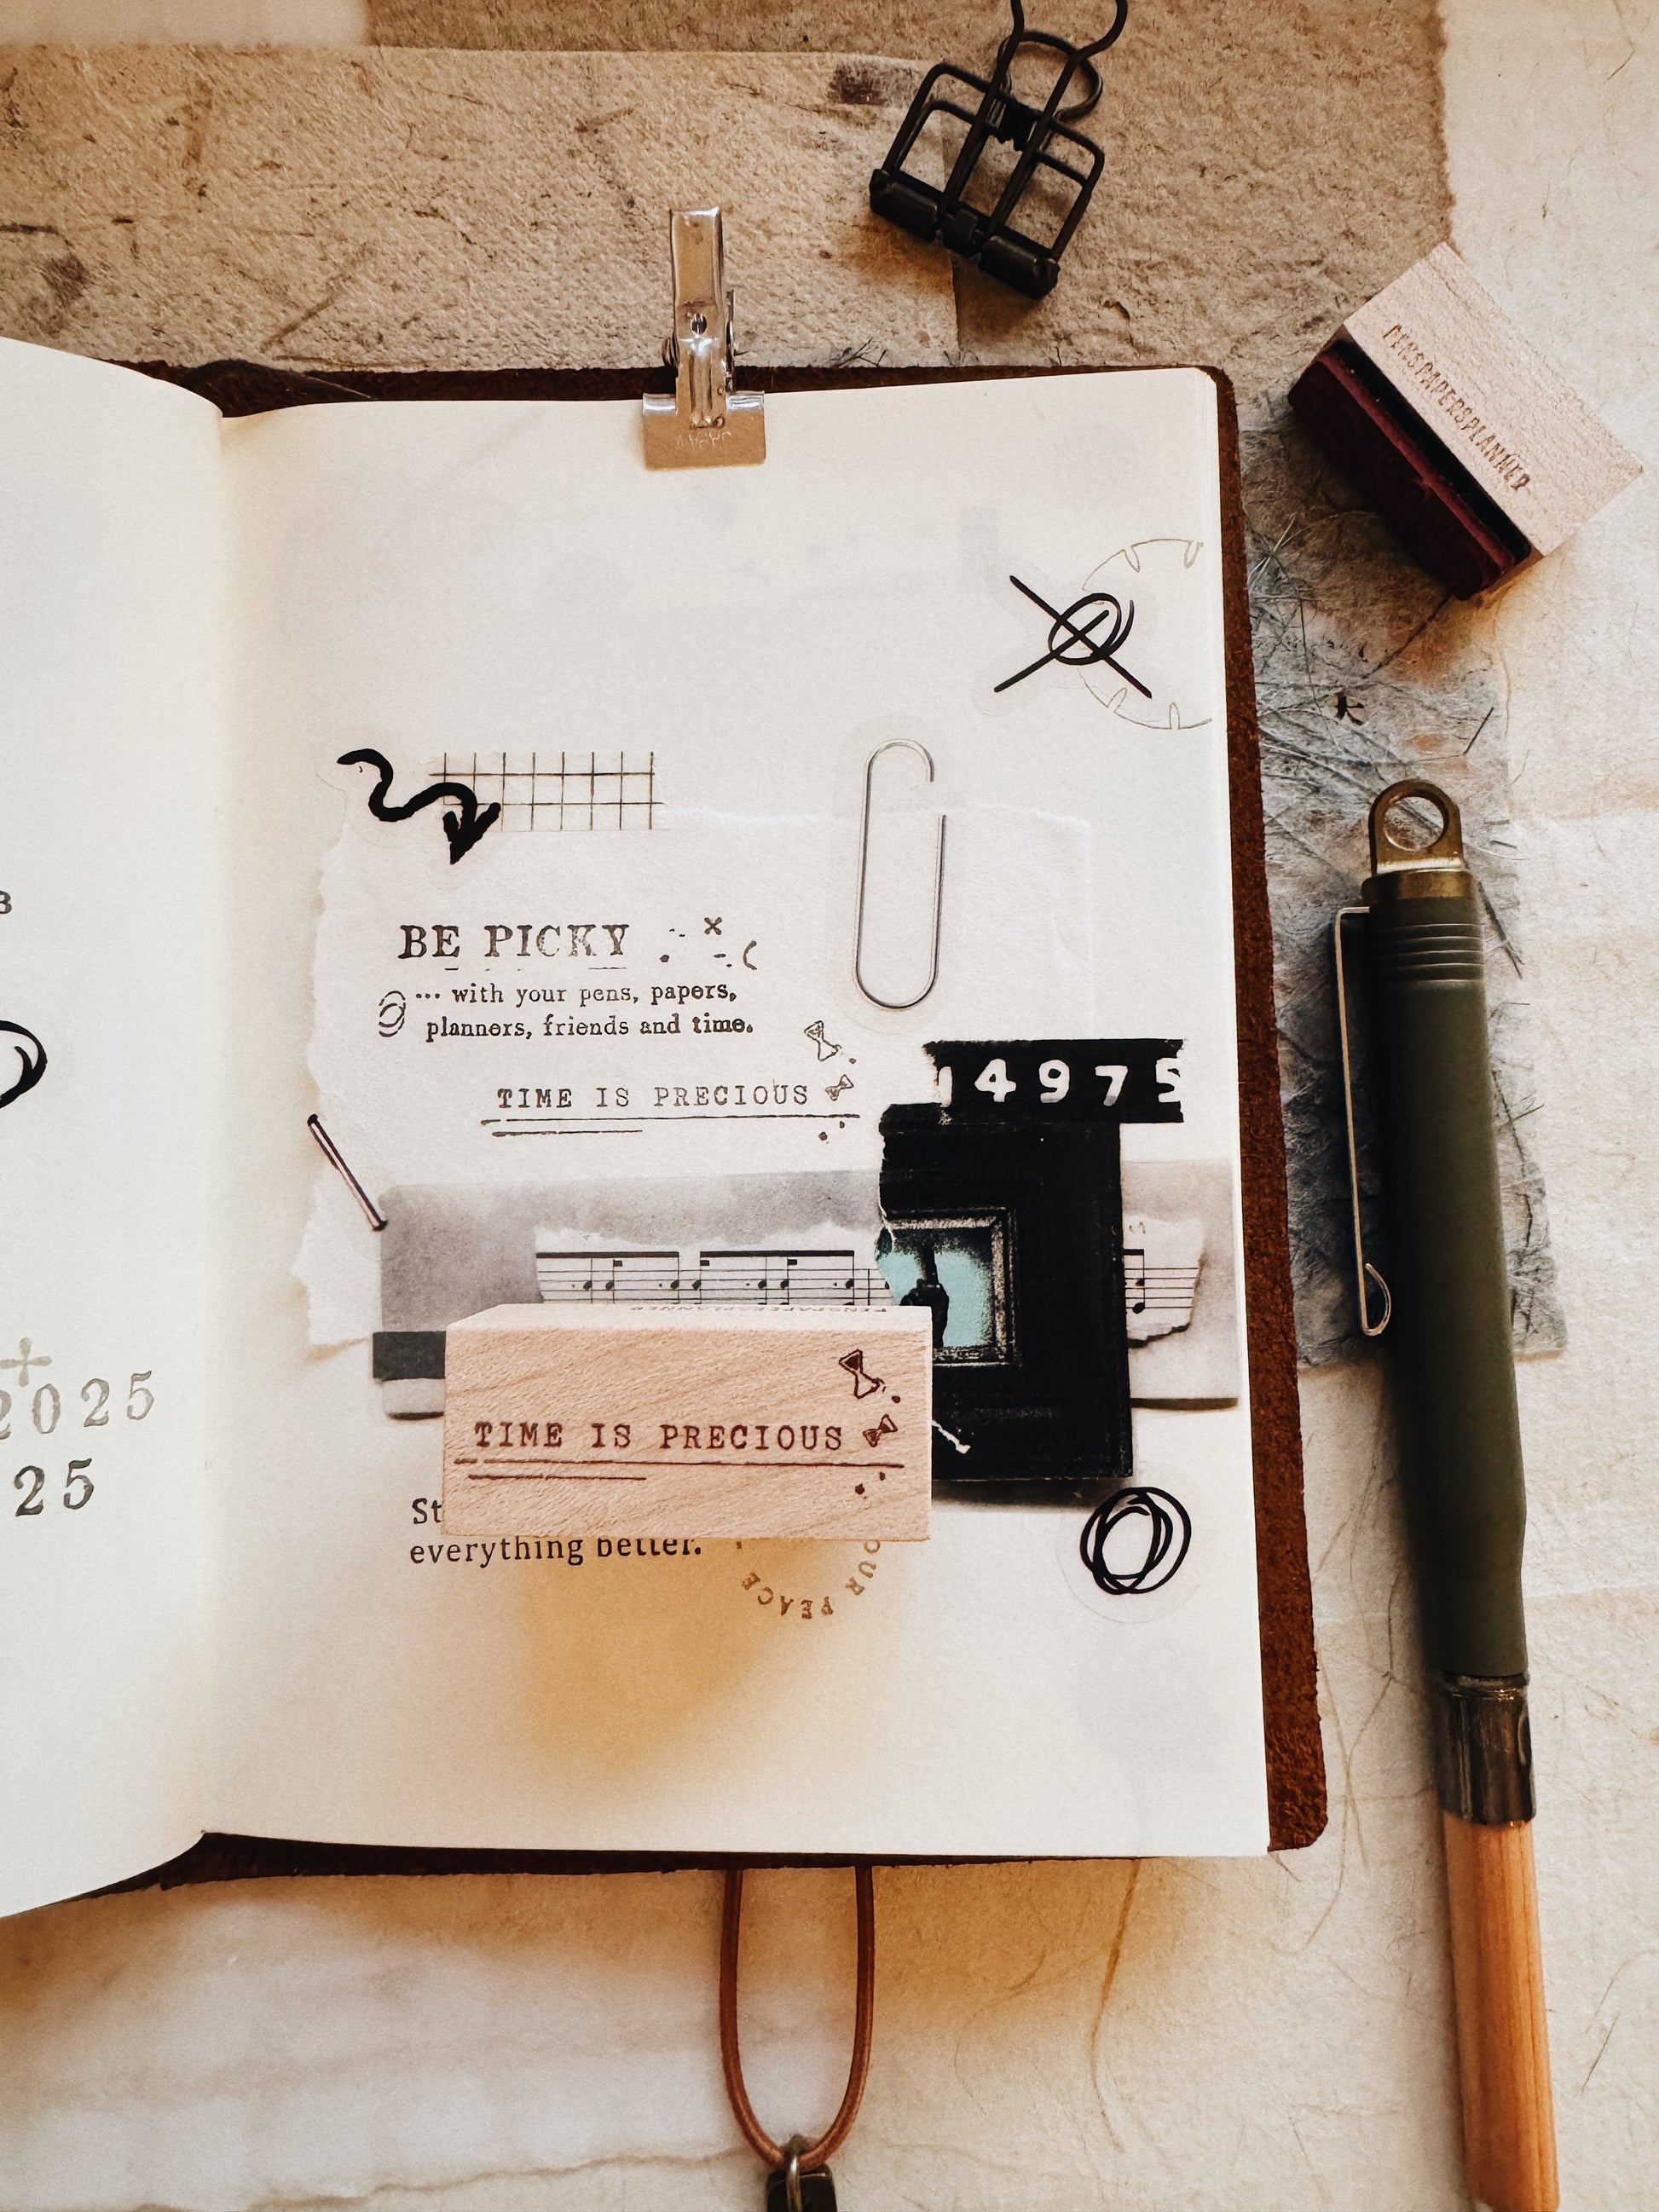 PENSPAPERSPLANNER
BE PICKY
... with your pens, papers,
planners, friends and time.
TIME IS PRECIOUS
4975
TIME IS PRECIOUS
everything better.
OUR PEACE
2025
25